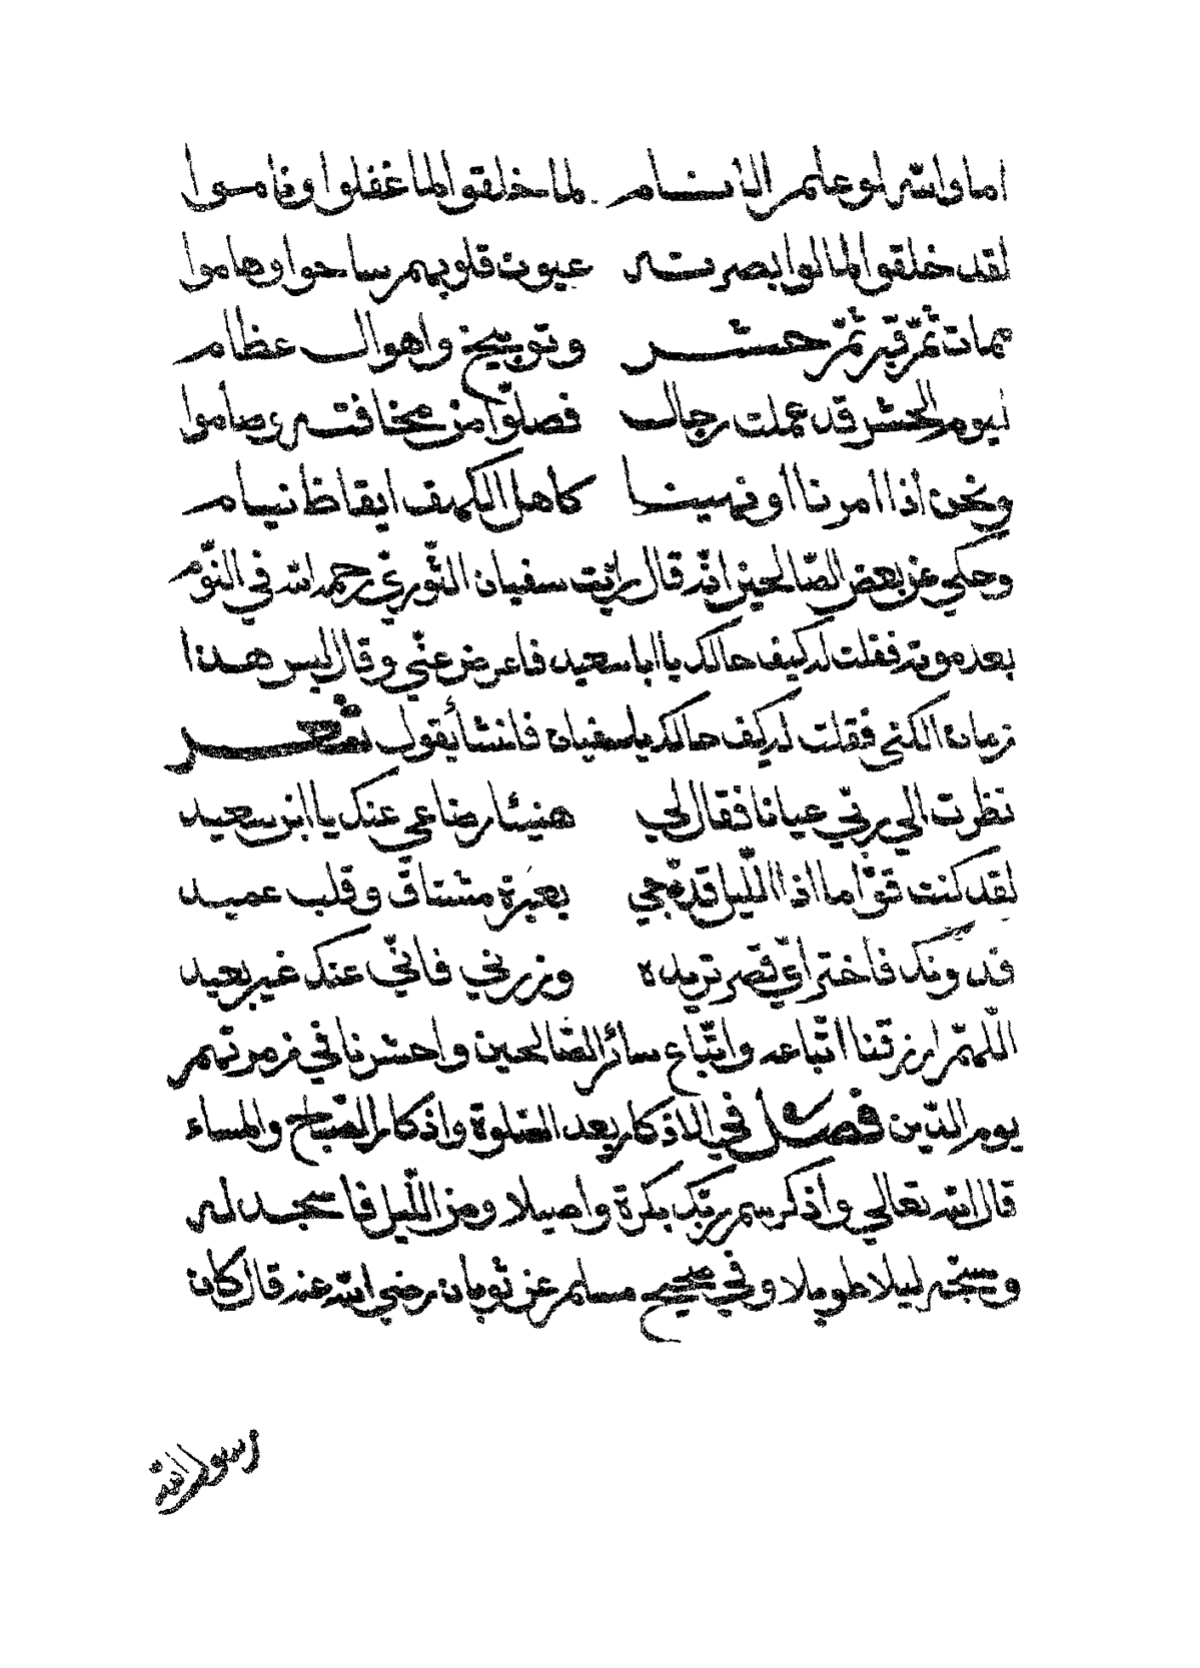 اما والله لو علم الانام لما خلقوا لما غفلوا وناموا
لقد خلقوا لما لوابصرته عيون قلوبهم ساحوا وهاموا
ممات ثمّ قبر ثمّ حشر وتوبيخ واهوال عظام
ليوم الحشر قد عملت رجال فصلّوا من مخافته وصاموا
ونحن اذا امرنا أو نهينا كاهل الكهف ايقاظ نيام
وحكي عن بعض الصّالحين انّه قال رايت سفيان الثّوريّ رحمه الله في النّوم
بعد موته فقلت له كيف حالك يا ابا سعيد فاعرض عنّي وقال ليس هذا
زمان الكنى فقلت له كيف حالك ياسفيان فانشأ يقول شعر
نظرت الي ربّي عيانا فقال لي هنيئا رضاءي عنك يا ابن سعيد
لقد كنت قوّاما اذا اللّيل قد دجي بعبرة مشتاق وقلب عميد
فدونك فاختر ايّ قصر تريده وزرني فانّي عنك غير بعيد
اللّهمّ ارزقنا اتّباعه واتّباع سائر الصّالحين واحشرنا في زمرتهم
يوم الدّين فصل في الاذكار بعد الصّلوة واذكار الصّباح والمساء
قال الله تعالي واذكر سم ربّك بكرة واصيلا ومن اللّيل فاسجد له
وسبّحه ليلا طويلا وفي صحيح مسلم عن ثوبان رضي الله عنه قال كان
رسول الله